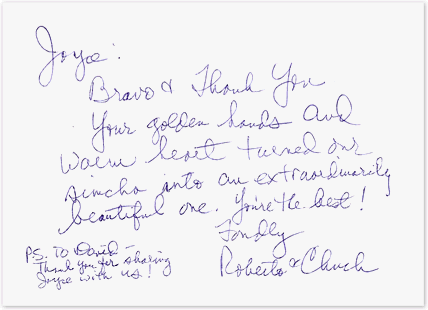 Joyce:
Bravo & Thank You
Your golden hands and
warm heart turned our
simcha into an extraordinarily
beautiful one. You're the best!
Fondly
Roberta & Chuck
P.S. TO David -
Thank you for sharing
Joyce with us!